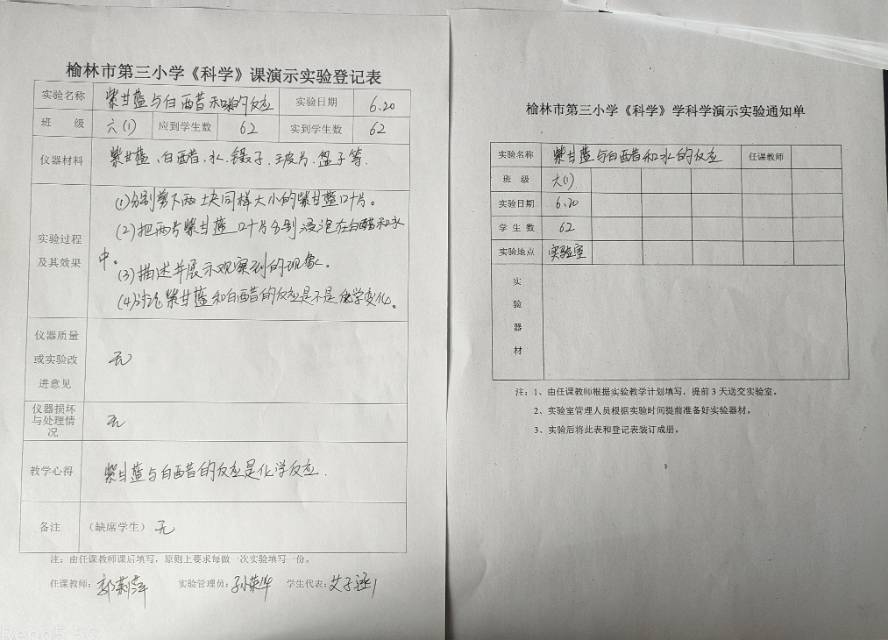 榆林市第三小学《科学》课演示实验登记表
实验名称 紫甘蓝与白醋和水的反应 实验日期 6.20
班 级 六(1) 应到学生数 62 实到学生数 62
仪器材料 紫甘蓝、白醋、水、镊子、玻片、盘子等.
实验过程
及其效果
(1)分别剪下两块同样大小的紫甘蓝叶片。
(2)把两片紫甘蓝叶片分别浸泡在白醋和水
中。
(3)描述并展示观察到的现象。
(4)讨论紫甘蓝和白醋的反应是不是化学变化。
仪器质量
或实验改
进意见
无
仪器损坏
与处理情
况
无
教学心得 紫甘蓝与白醋的反应是化学反应.
备注 (缺席学生) 无
注：由任课教师课后填写，原则上要求每做一次实验填写一份。
任课教师: 实验管理员: 孙荣华 学生代表: 艾子涵
榆林市第三小学《科学》学科学演示实验通知单
实验名称 紫甘蓝与白醋和水的反应 任课教师
班 级 六(1)
实验日期 6.20
学 生 数 62
实验地点 实验室
实
验
器
材
注：1、由任课教师根据实验教学计划填写，提前 3 天送交实验室。
2、实验室管理人员根据实验时间提前准备好实验器材。
3、实验后将此表和登记表装订成册。